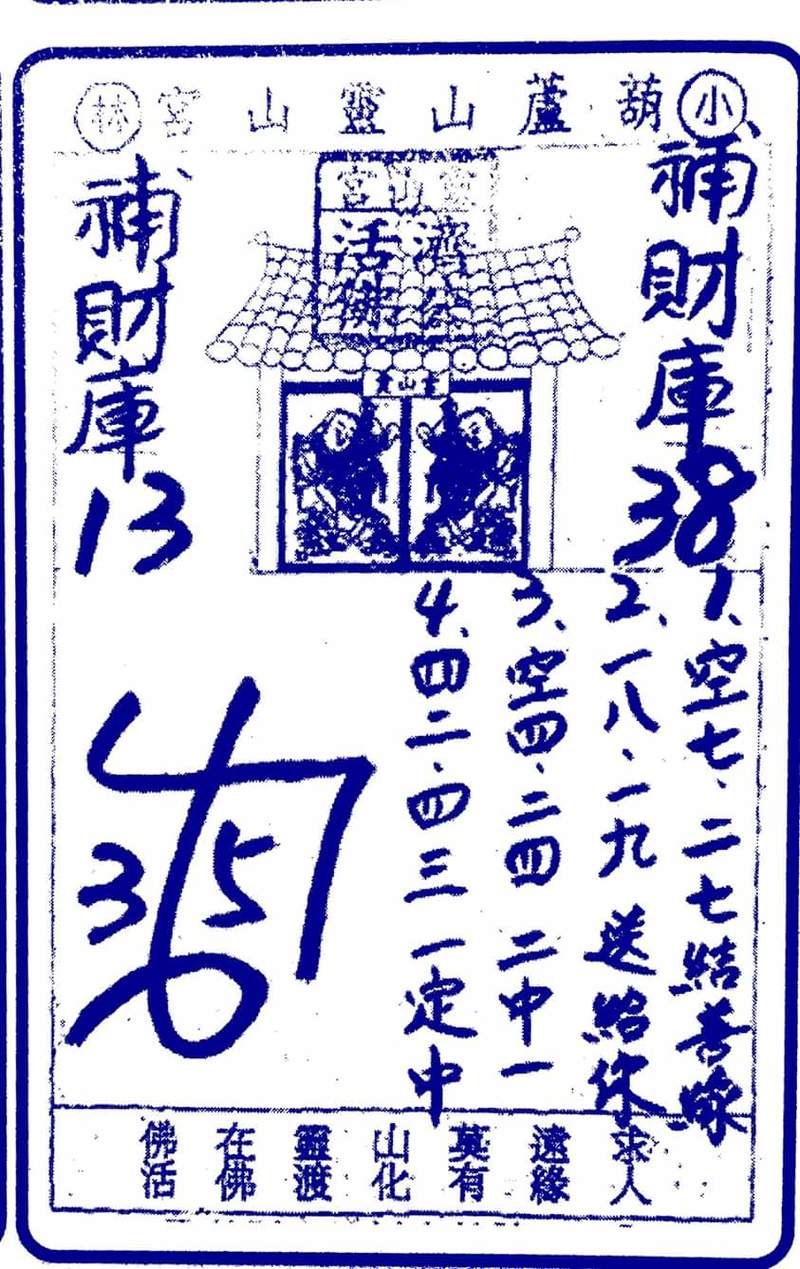 小葫蘆山靈山宮林
補財庫
38
濟公
活佛
補財庫
13
1、空七.二七結善緣
2、一八.一九送給你
3、空四.二四 二中一
4、四二.四三一定中
3 5
佛在靈山莫遠求
活佛渡化有緣人